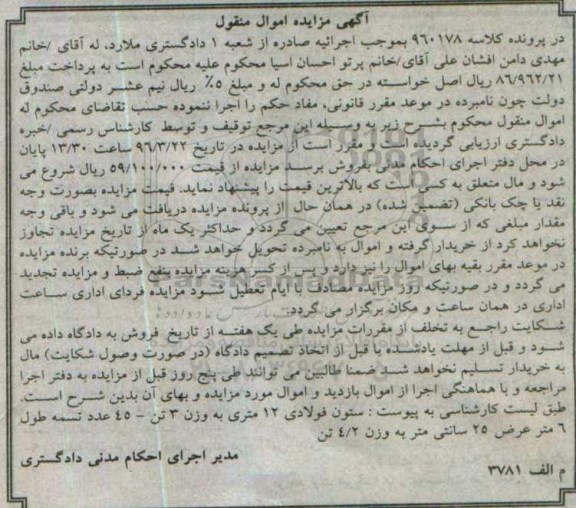 آگهی مزایده اموال منقول
در پرونده کلاسه ۹۶۰۱۷۸ بموجب اجرائیه صادره از شعبه ۱ دادگستری ملارد، له آقای /خانم
مهدی دامن افشان علی آقای/خانم پرتو احسان اسیا محکوم علیه محکوم است به پرداخت مبلغ
۸۶/۹۶۲/۲۱ ریال اصل خواسته در حق محکوم له و مبلغ ۵٪ ریال نیم عشر دولتی صندوق
دولت چون نامبرده در موعد مقرر قانونی، مفاد حکم را اجرا ننموده حسب تقاضای محکوم له
اموال منقول محکوم بشرح زیر به وسیله این مرجع توقیف و توسط کارشناس رسمی /خبره
دادگستری ارزیابی گردیده است و مقرر است از مزایده در تاریخ ۹۶/۳/۲۲ ساعت ۱۳/۳۰ پایان
در محل دفتر اجرای احکام مدنی بفروش برسد مزایده از قیمت ۵۹/۱۰۰/۰۰۰ ریال شروع می
شود و مال متعلق به کسی است که بالاترین قیمت را پیشنهاد نماید. قیمت مزایده بصورت وجه
نقد یا چک بانکی (تضمین شده) در همان حال از پرونده مزایده دریافت می شود و باقی وجه
مقدار مبلغی که از سوی این مرجع تعیین می گردد و حداکثر یک ماه از تاریخ مزایده تجاوز
نخواهد کرد از خریدار گرفته و اموال به نامبرده تحویل خواهد شد در صورتیکه برنده مزایده
در موعد مقرر بقیه بهای اموال را نپردازد و پس از کسر هزینه مزایده بنفع ضبط و مزایده تجدید
می گردد و در صورتیکه روز مزایده مصادف با ایام تعطیل شود مزایده فردای اداری ساعت
اداری در همان ساعت و مکان برگزار می گردد.
شکایت راجع به تخلف از مقررات مزایده طی یک هفته از تاریخ فروش به دادگاه داده می
شود و قبل از مهلت یادشده یا قبل از اتخاذ تصمیم دادگاه (در صورت وصول شکایت) مال
به خریدار تسلیم نخواهد شد ضمنا طالبین می توانند طی پنج روز قبل از مزایده به دفتر اجرا
مراجعه و با هماهنگی اجرا از اموال بازدید و اموال مورد مزایده و بهای آن بدین شرح است.
طبق لیست کارشناسی به پیوست : ستون فولادی ۱۲ متری به وزن ۳ تن – ۴۵ عدد تسمه طول
۶ متر عرض ۲۵ سانتی متر به وزن ۴/۲ تن
مدیر اجرای احکام مدنی دادگستری
م الف ۳۷۸۱